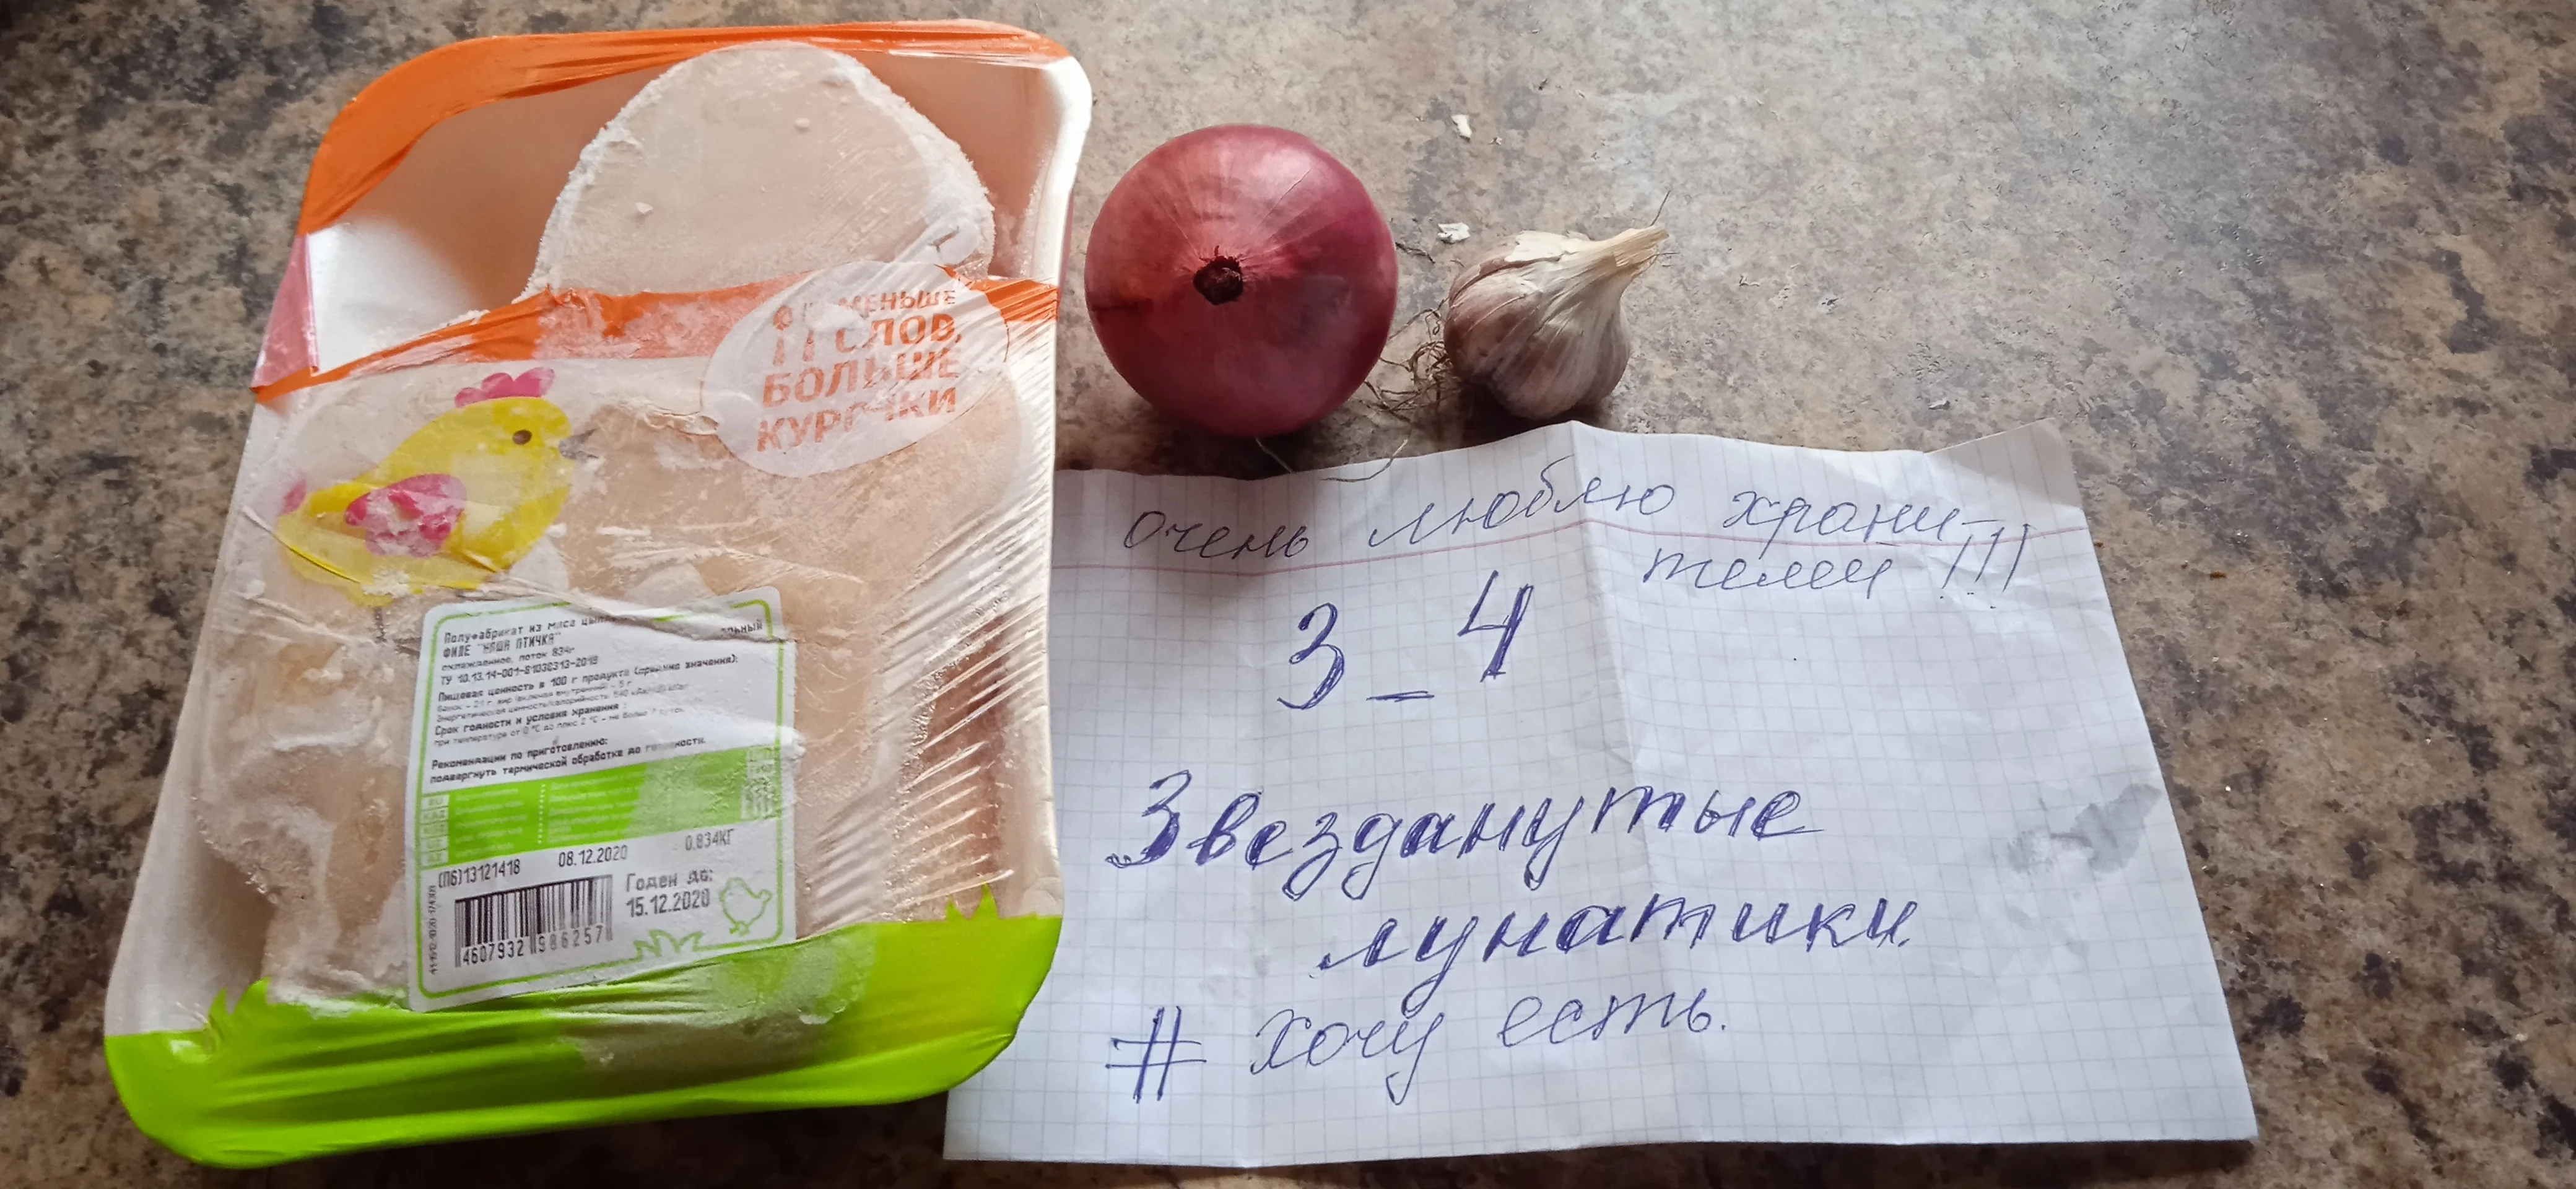 МЕНЬШЕ
СЛОВ,
БОЛЬШЕ
КУРОЧКИ
Полуфабрикат из мяса
ФИЛЕ "НАША ПТИЧКА"
охлажденное, лоток 834г
ТУ 10.13.14-001-81030313-2018
Пищевая ценность в 100 г продукта (средние значения):
Срок годности и условия хранения:
при температуре от 0 °C до плюс 2 °C - не более 7 суток.
Рекомендации по приготовлению:
подвергнуть термической обработке до готовности.
0.834КГ
08.12.2020
(П6)13121418
Годен до:
15.12.2020
4607932 986257
очень люблю храни-
телей !!!
3_4
Звезданутые
лунатики.
# хочу есть.